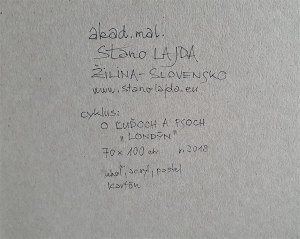 akad. mal.
Stano LAJDA
ŽILINA - SLOVENSKO
www.stanolajda.eu
cyklus:
O ĽUĎOCH A PSOCH
"LONDÝN"
70 x 100 cm r. 2018
uhoľ, acryl, pastel
kartón